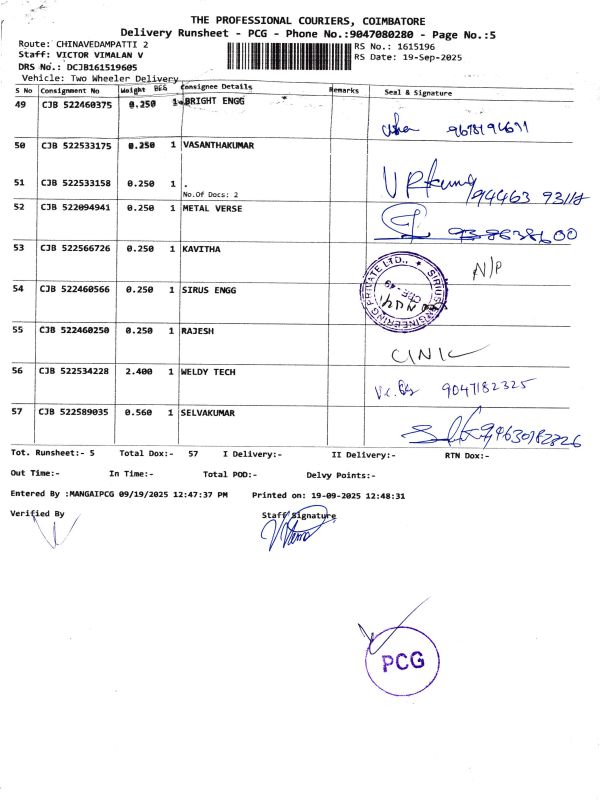 THE PROFESSIONAL COURIERS, COIMBATORE
Delivery Runsheet - PCG - Phone No.:9047080280 - Page No.:5
Route: CHINAVEDAMPATTI 2
RS No.: 1615196
Staff: VICTOR VIMALAN V
RS Date: 19-Sep-2025
DRS No.: DCJB161519605
Vehicle: Two Wheeler Delivery
S No Consignment No Weight BEG Consignee Details Remarks Seal & Signature
49 CJB 522460375 0.250 1 BRIGHT ENGG
50 CJB 522533175 0.250 1 VASANTHAKUMAR
51 CJB 522533158 0.250 1 .
No.Of Docs: 2
52 CJB 522094941 0.250 1 METAL VERSE
53 CJB 522566726 0.250 1 KAVITHA N/P
54 CJB 522460566 0.250 1 SIRUS ENGG
SIRIUS ENGINEERING PRIVATE LTD.,
CBE - 49
55 CJB 522460250 0.250 1 RAJESH
56 CJB 522534228 2.400 1 WELDY TECH 9047182325
57 CJB 522589035 0.560 1 SELVAKUMAR
Tot. Runsheet:- 5 Total Dox:- 57 I Delivery:- II Delivery:- RTN Dox:-
Out Time:- In Time:- Total POD:- Delvy Points:-
Entered By :MANGAIPCG 09/19/2025 12:47:37 PM Printed on: 19-09-2025 12:48:31
Verified By Staff Signature
PCG